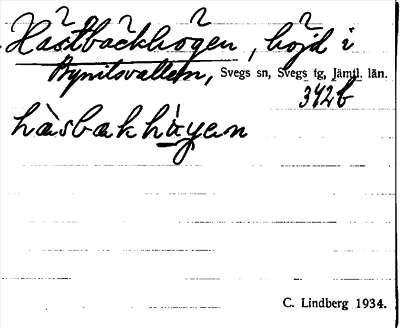 Hästbackhogen, höjd i
Bynilsvallen, Svegs sn, Svegs tg, Jämtl. län.
342b
hàsbakhàgen
C. Lindberg 1934.